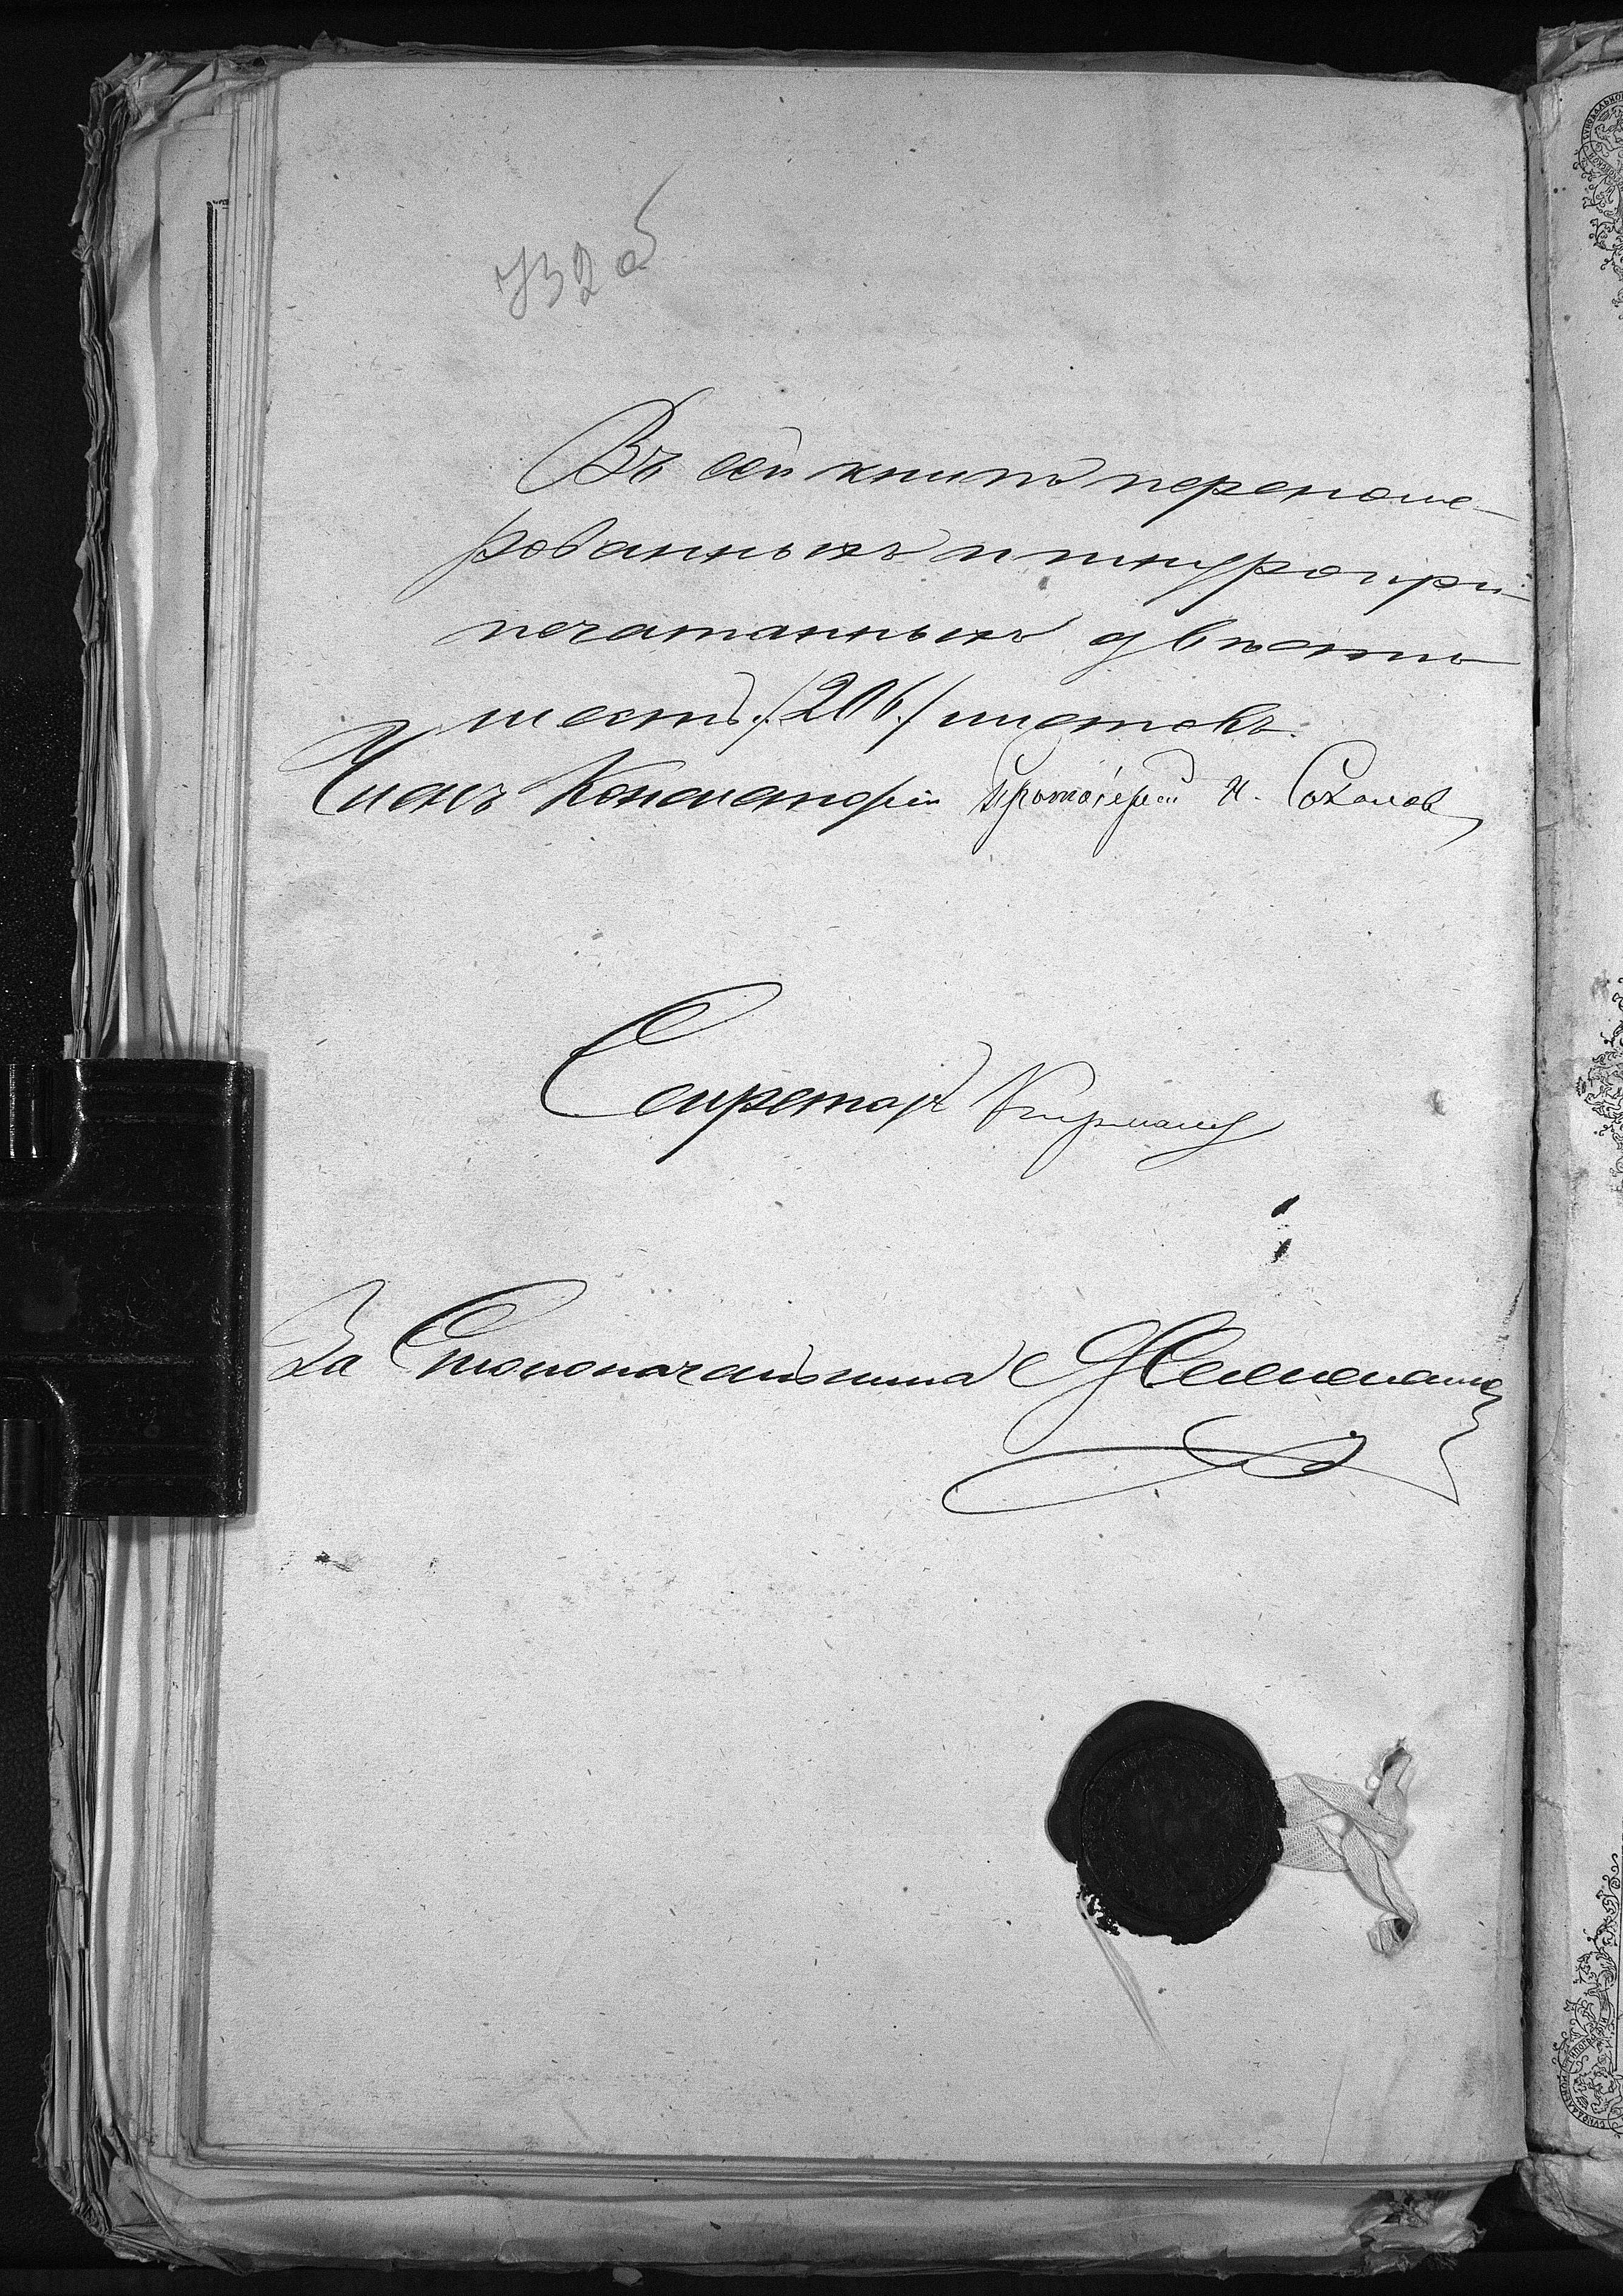 732 об
Въ сей книгѣ перенуме-
рованныхъ и шнуропри-
печатанныхъ двѣсти
шесть /206/ листовъ.
Членъ Консисторіи Протоіерей Н. Соколовъ
Секретарь
За Столоначальника